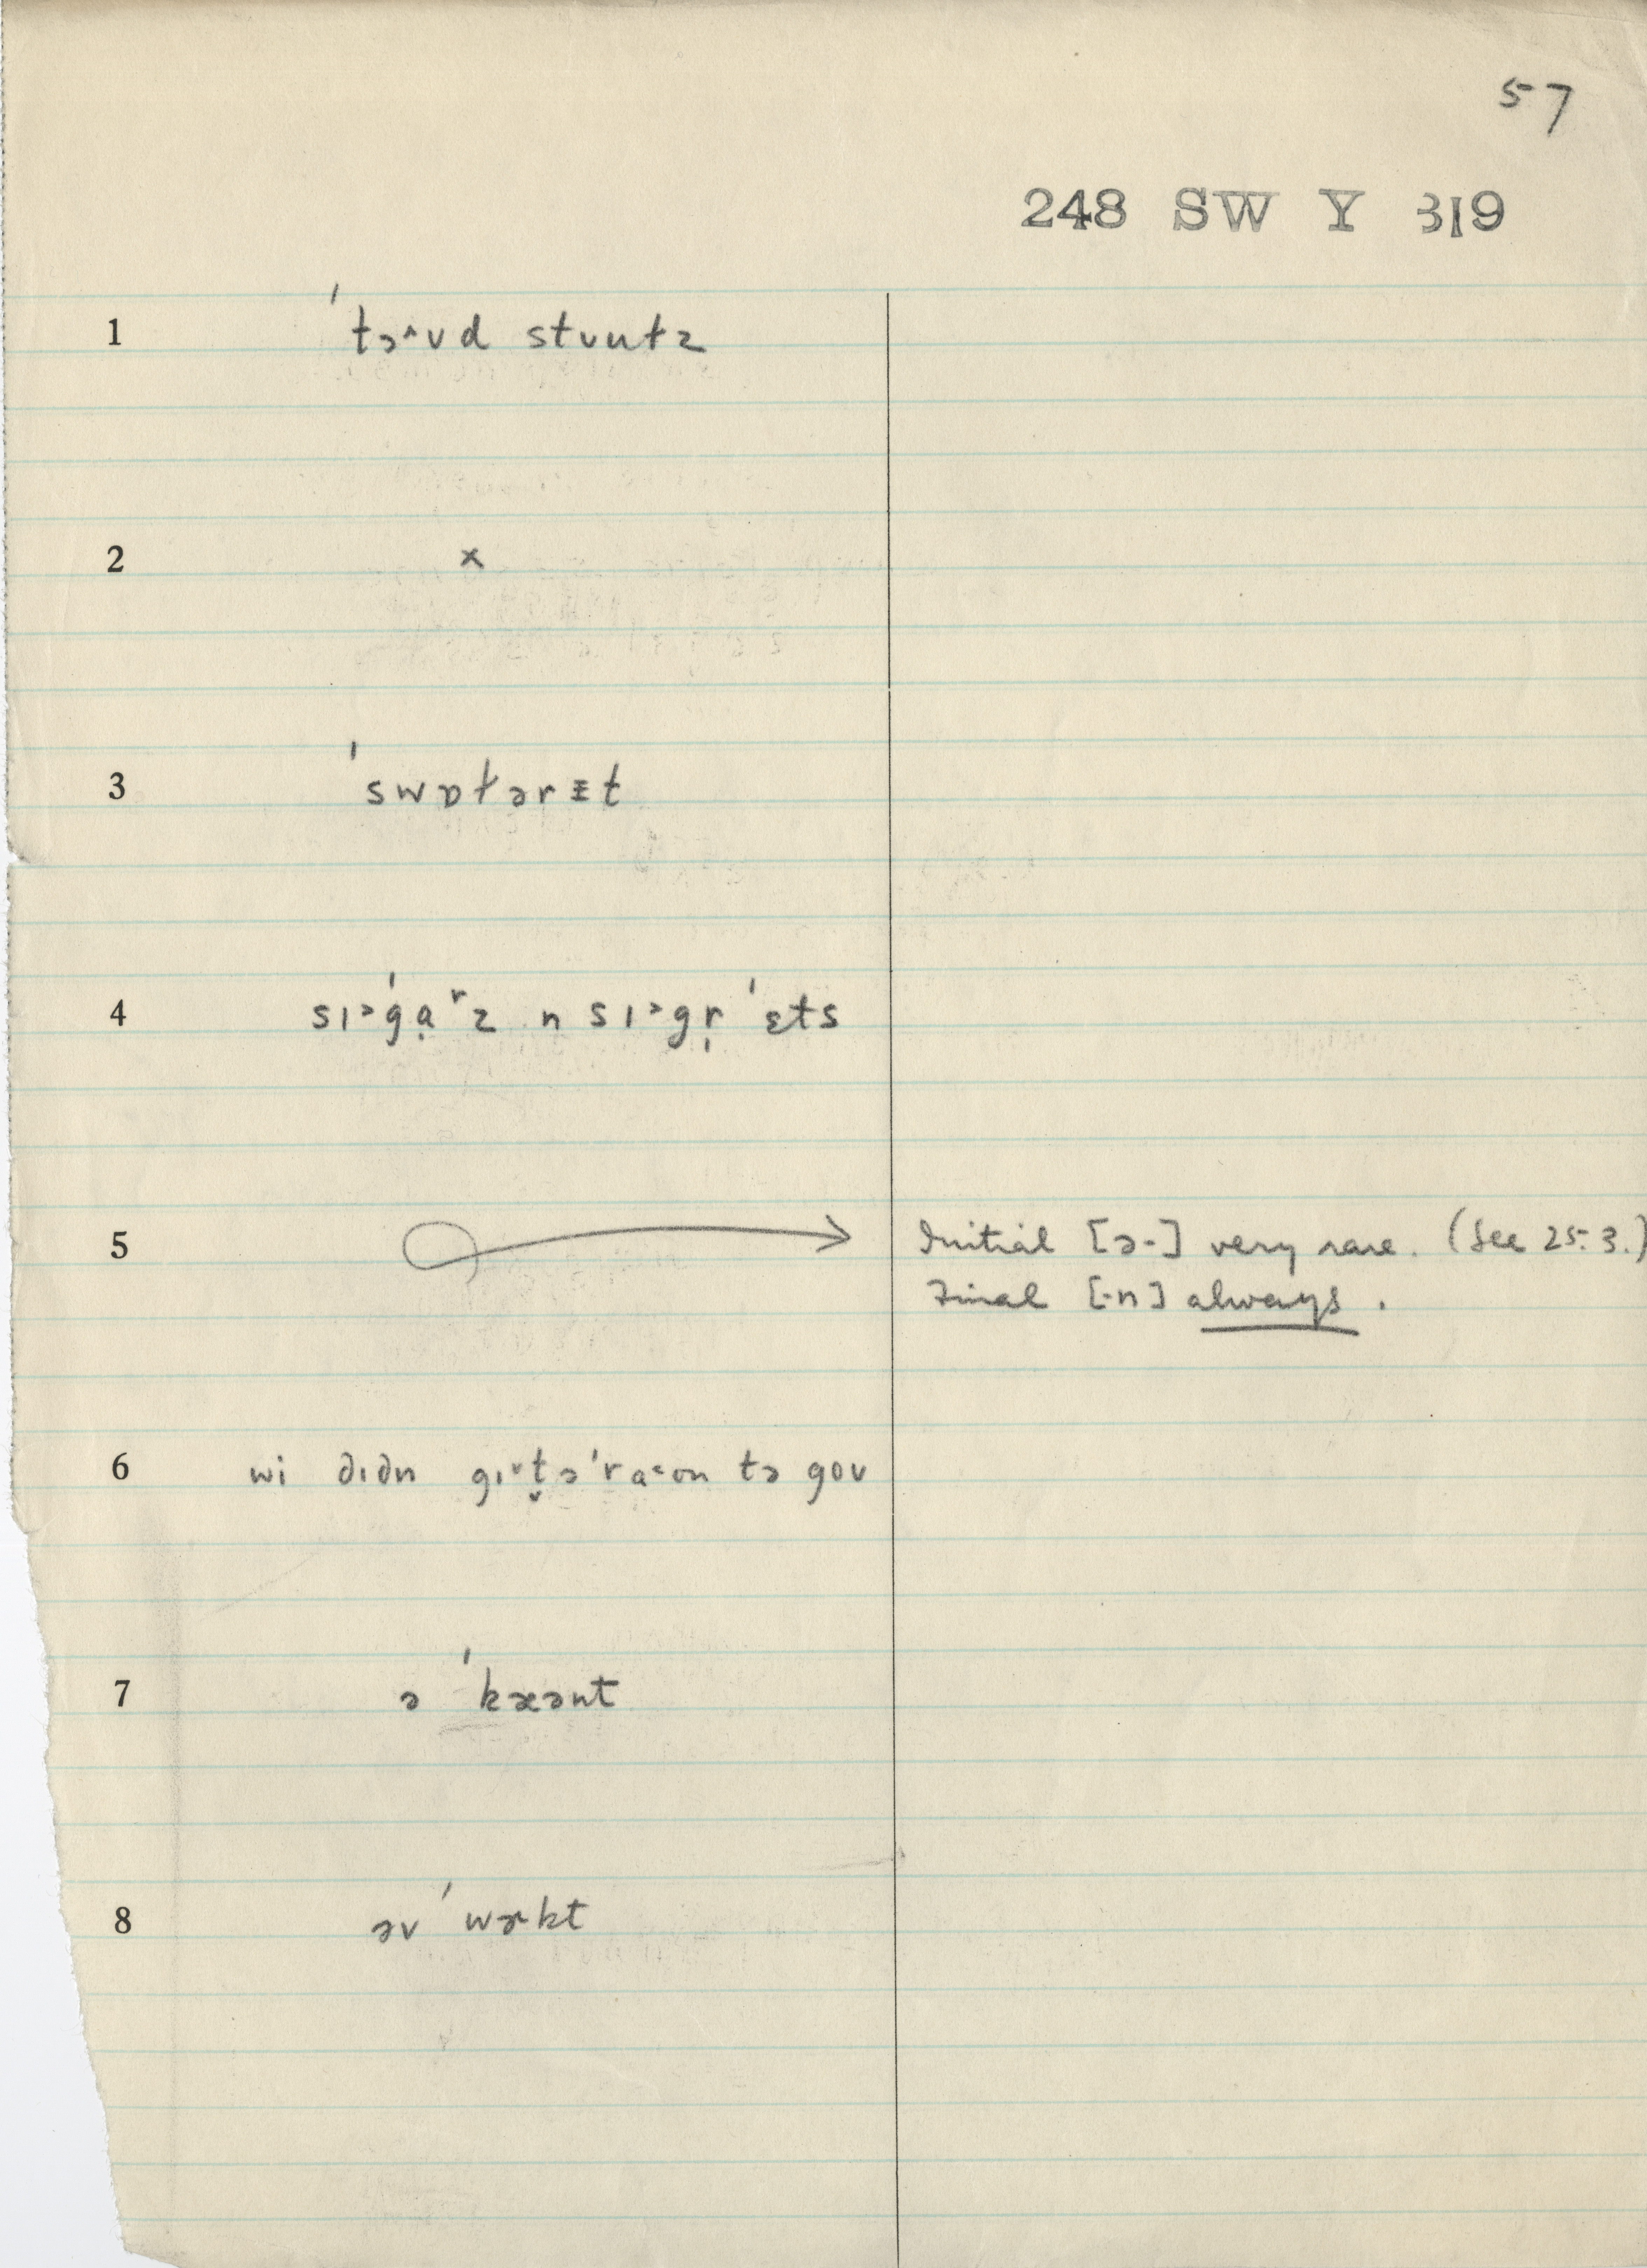 57
248 SW Y 319
1 ˈtɔ˄ʊd stʊutz
2 x
3 ˈswɒt̷ərɪ̵t
4 sɪ˃ˈgɑ̣ʳz n sɪ˃gr̩ˈɛts
5 Initial [ə-] very rare. (See 25.3.)
Final [-n] always.
6 wi dɪdn gɪ˅t̬əˈra˂ən tə goʊ
7 ə ˈkæənt
8 əv ˈwɚkt